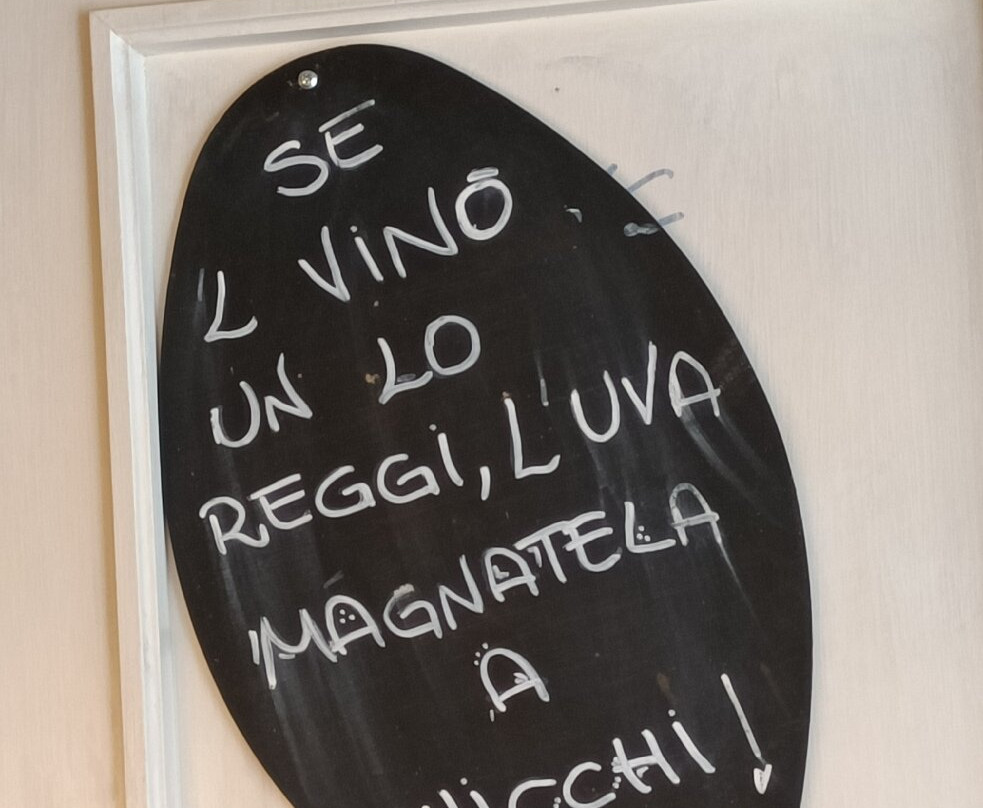 SE
L VINO
UN LO
REGGI, L'UVA
MAGNATELA
A